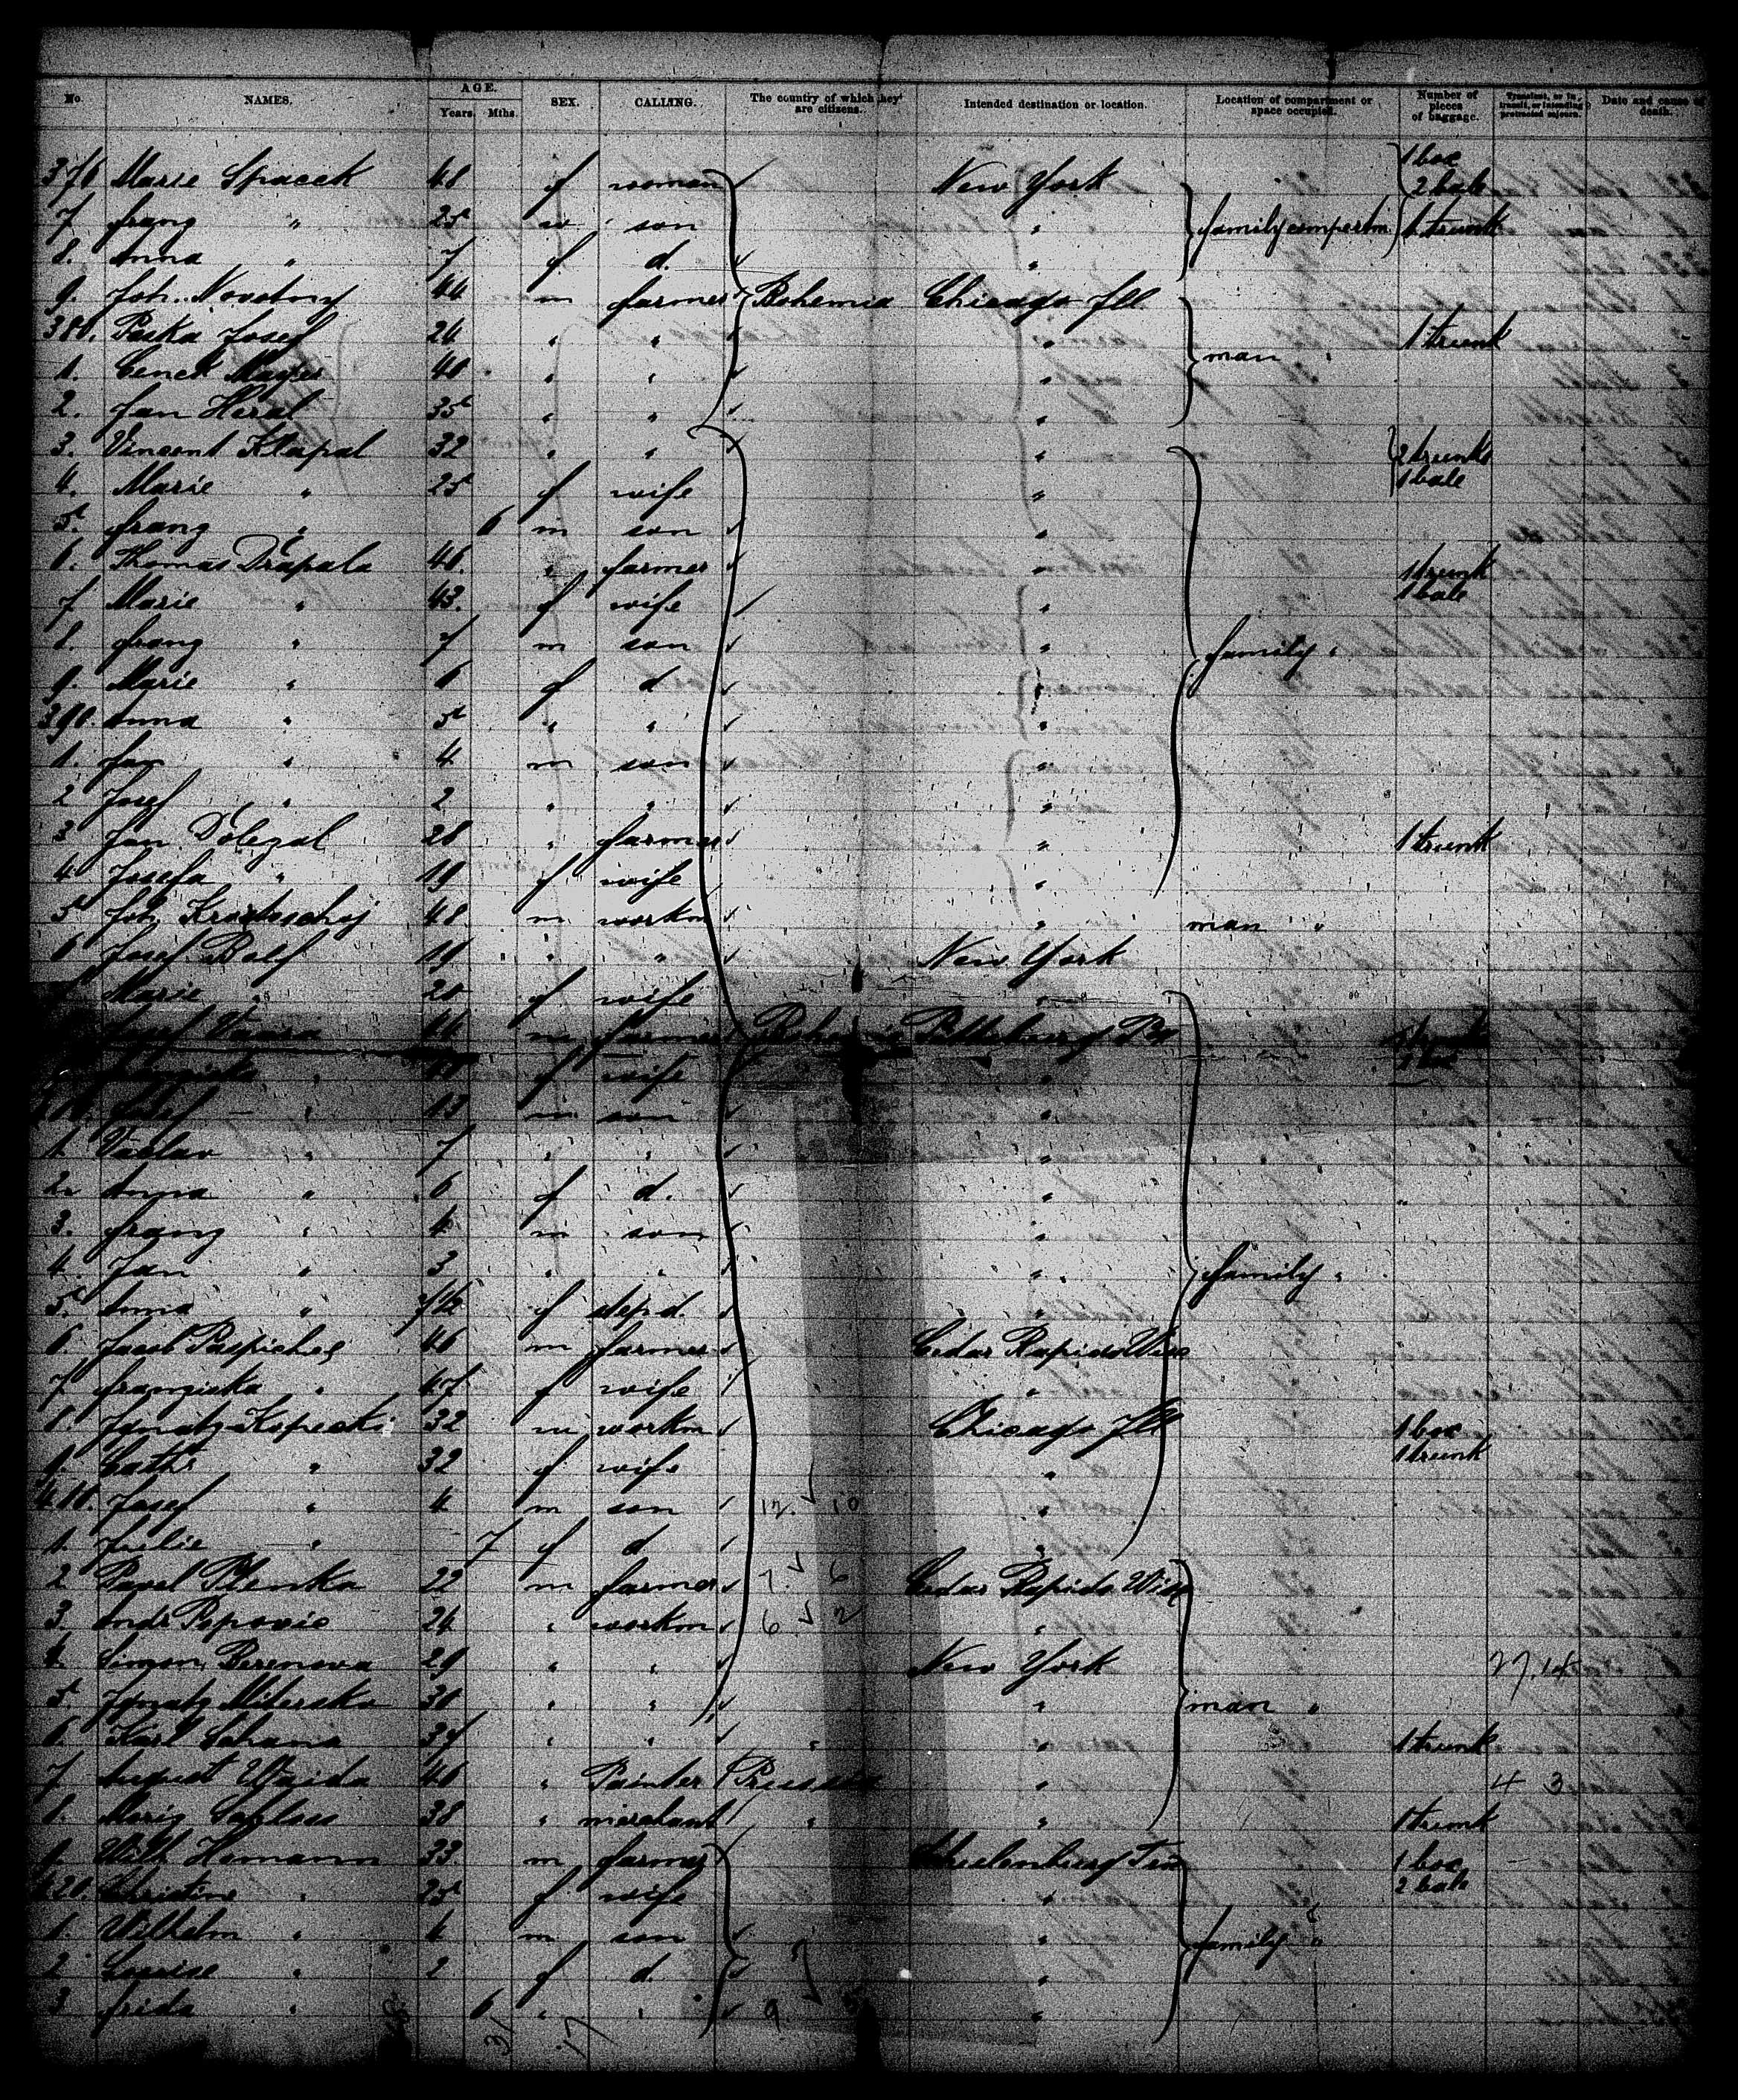 No. NAMES. AGE. Years. Mths. SEX. CALLING. The country of which they are citizens. Intended destination or location. Location of compartment or space occupied. Number of pieces of baggage. Transient, or in transit, or intending protracted sojourn. Date and cause of death.
376 Marie Spacek 48 f woman New York 1 box 2 bale
7 franz " 25 m son " family compertm. 1 trunk
8. Anna " 7 f d. "
9. Joh. Novotny 44 m farmer Bohemia Chicago Ill.
380. Paska Josef 24 " " " 1 trunk
1. Cenek Mayer 40 " " " man "
2. Jan Heral 35 " " "
3. Vincent Klapal 32 " " " 2 trunks
4. Marie " 25 f wife " 1 bale
5. franz " 6 m son "
6. Thomas Drapala 46. " farmer " 1 trunk
7 Marie " 43. f wife " 1 bale
8. franz " 7 m son " family "
9. Marie " 6 f d "
390. Anna " 5 " " "
1. Jan " 4 m son "
2 Josef " 2 " " "
3 Jan Dolezal 28 " farmer " 1 trunk
4. Josefa " 19 f wife "
5 Joh. 48 m workm " man "
6 Josef Balf 19 " " New York
7 Marie " 20 f wife "
Josef 44 m farmer Bohemia Pa
" f wife " 1 box
Josef " 13 m son "
1. Vaclav " 7 " " "
2. Anna " 6 f d. "
3. franz " 4 m son "
4. Jan " 3 " " " family "
5. Anna " f step d. "
6. Jacob Paspichel 46 m farmer Cedar Rapids Wisc
7 franziska " 47 f wife "
8. Ignatz Kopecki 32 m workm Chicago Ill 1 box
9. Cath. " 32 f wife " 1 trunk
410. Josef " 4 m son 12. 10 "
1. Julie " 7 f d "
2 Pavel Plenka 22 m farmer 7. 6 Cedar Rapids Wisc
3. Andr Popovic 24 " workm 6 2 "
4. Simon Berenova 29 " " New York 27.14
5. Ignatz Miterska 30 " " " man "
6. Karl Schana 37 " " " " 1 trunk
7 August 46 " Painter Prussia " 4 3
8. Moriz 38 " merchant " " 1 trunk
9. Wilh Homann 33. m farmer 1 box
420. Christine " 25 f wife " 2 bale
1. Wilhelm " 4 m son " family "
2. Louise " 2 f d. "
3. frida " 6 " " 9. "
31 17